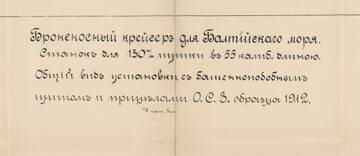 Броненосный крейсеръ для Балтійскаго моря.
Станокъ для 130 м/м пушки въ 55 калиб. длиною.
Общій видъ установки съ башенноподобнымъ
щитомъ и прицѣлами О.С.З. образца 1912.